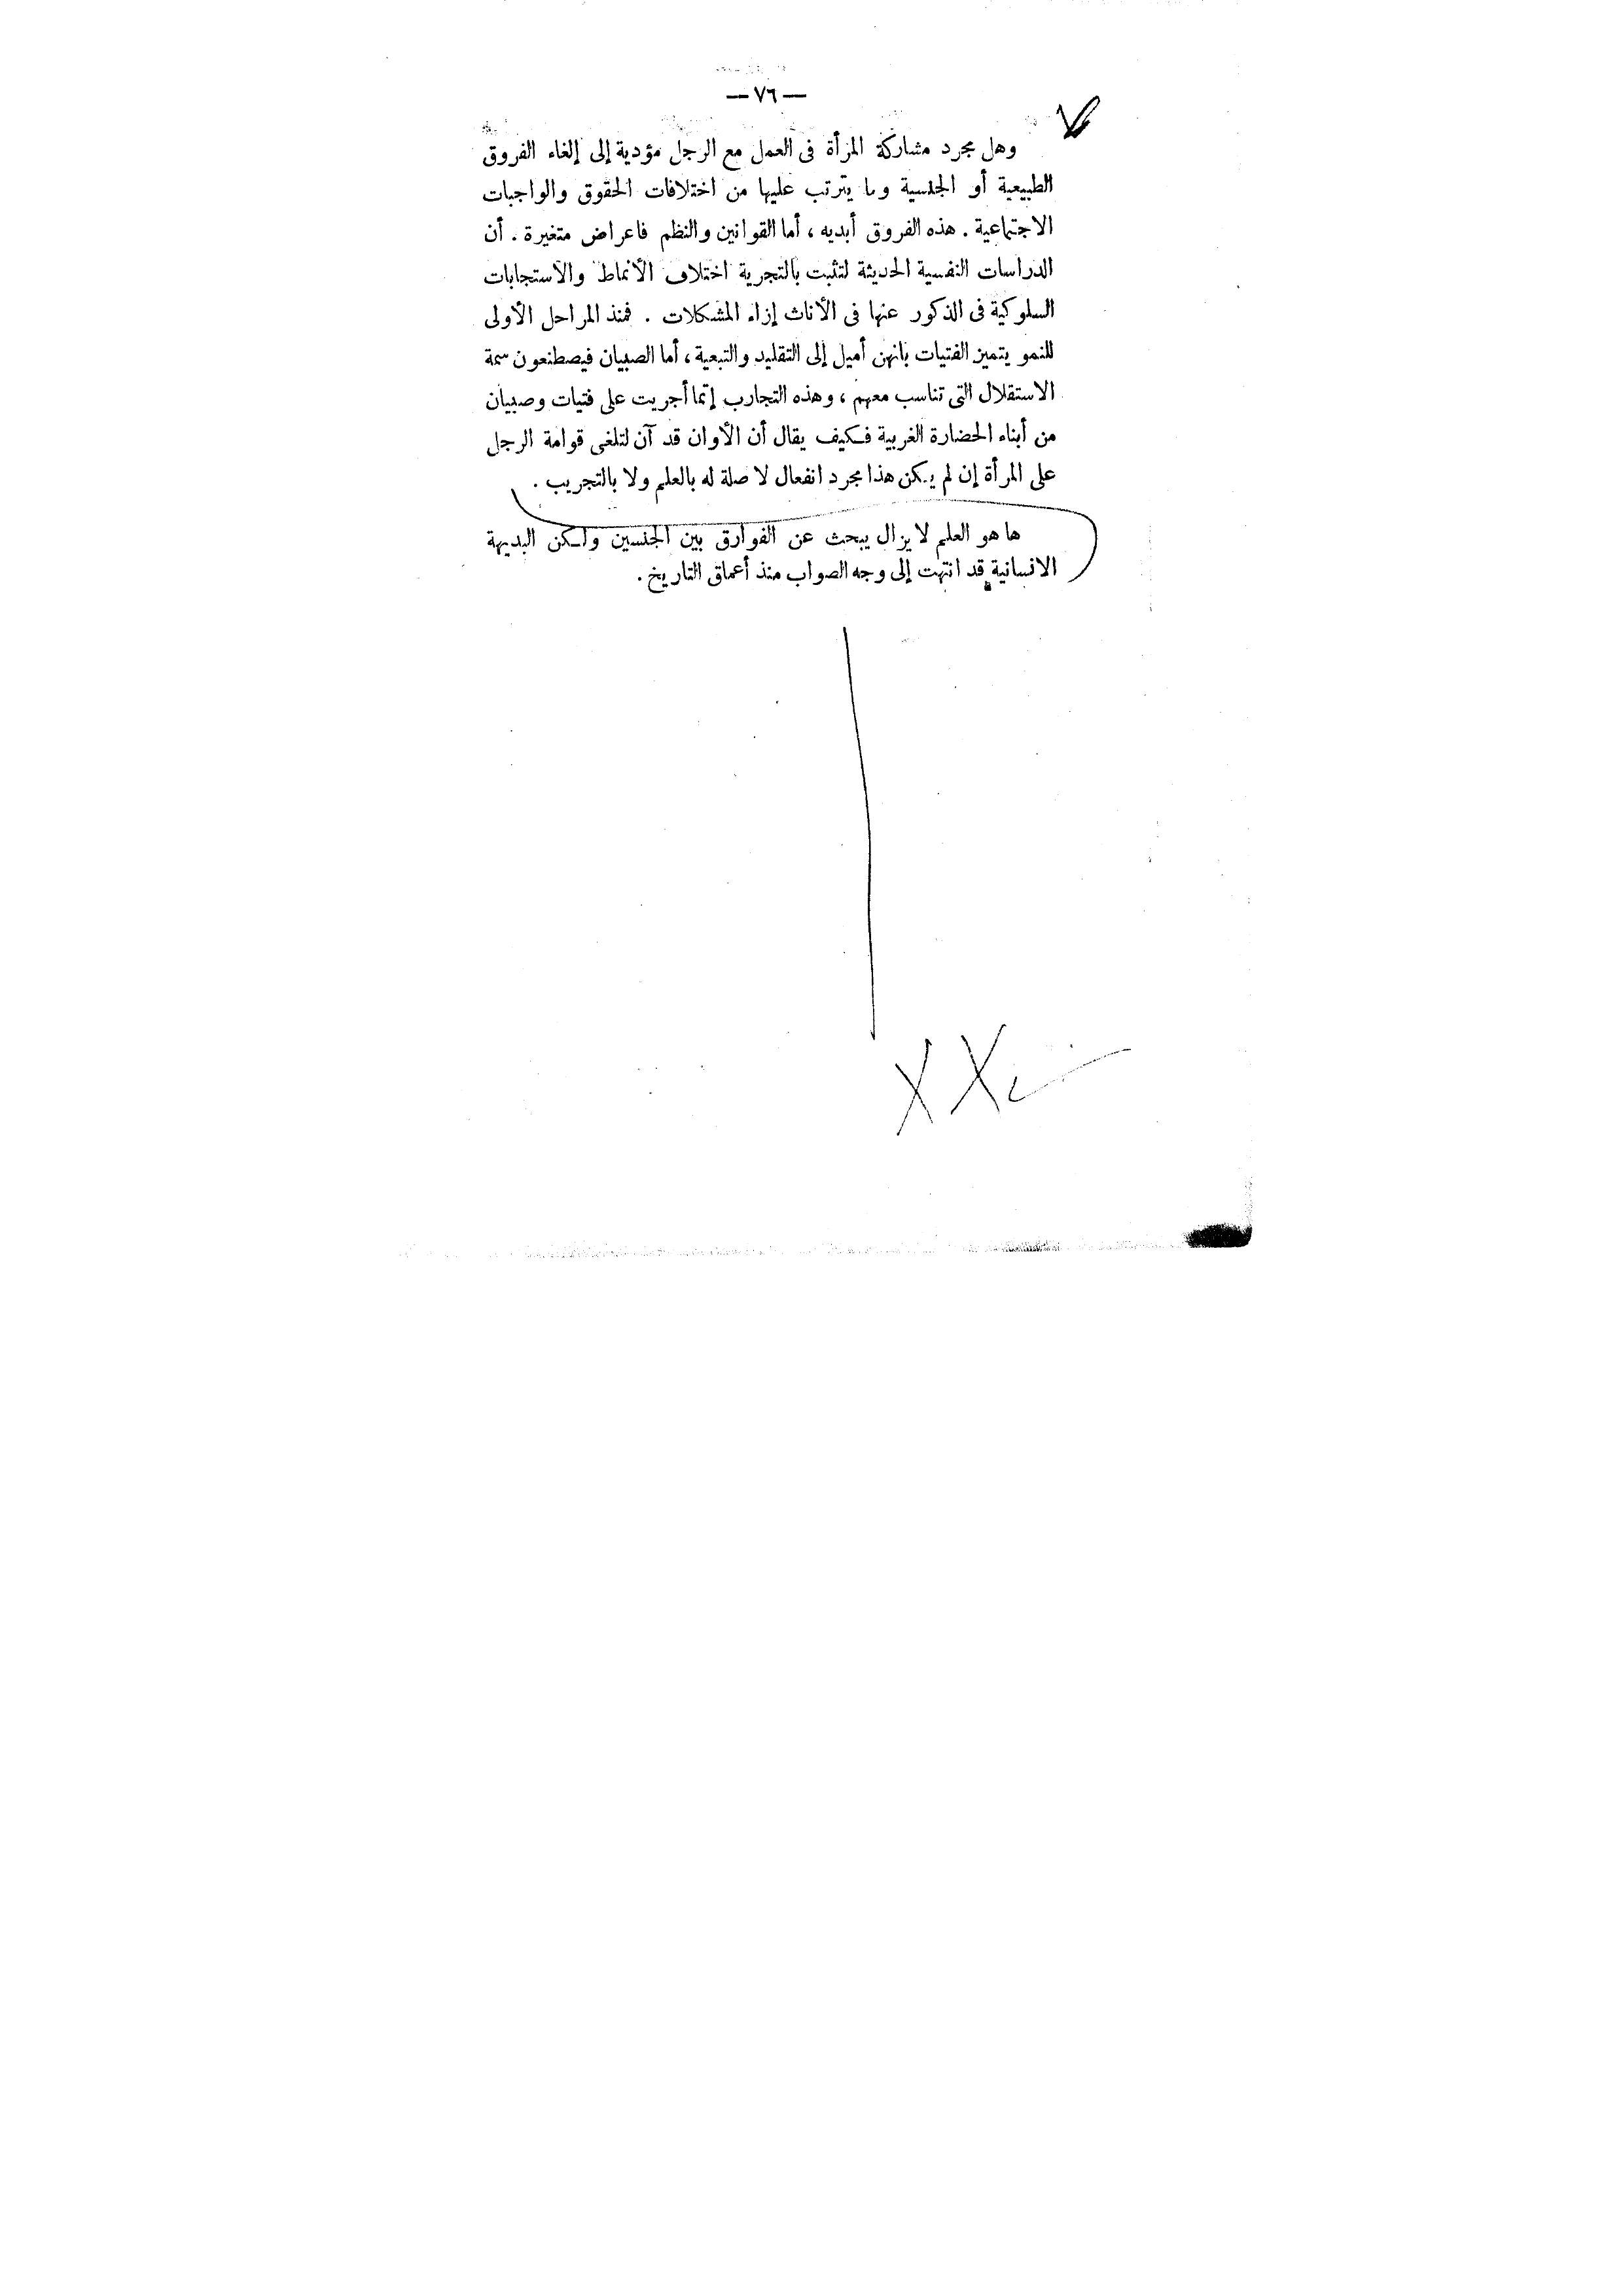 — ٧٦ —
وهل مجرد مشاركة المرأة فى العمل مع الرجل مؤدية إلى إلغاء الفروق
الطبيعية أو الجنسية وما يترتب عليها من اختلافات الحقوق والواجبات
الاجتماعية . هذه الفروق أبديه ، أما القوانين والنظم فاعراض متغيرة . أن
الدراسات النفسية الحديثة لتثبت بالتجرية اختلاف الأنماط والاستجابات
السلوكية فى الذكور عنها فى الأناث إزاء المشكلات . فمنذ المراحل الأولى
للنمو يتميز الفتيات بانهن أميل إلى التقليد والتبعية ، أما الصبيان فيصطنعون سمة
الاستقلال التى تناسب معهم ، وهذه التجارب إنما أجريت على فتيات وصبيان
من أبناء الحضارة الغربية فكيف يقال أن الأوان قد آن لتلغى قوامة الرجل
على المرأة إن لم يكن هذا مجرد انفعال لا صلة له بالعلم ولا بالتجريب .
ها هو العلم لا يزال يبحث عن الفوارق بين الجنسين ولكن البديهة
الانسانية قد انتهت إلى وجه الصواب منذ أعماق التاريخ .
X X